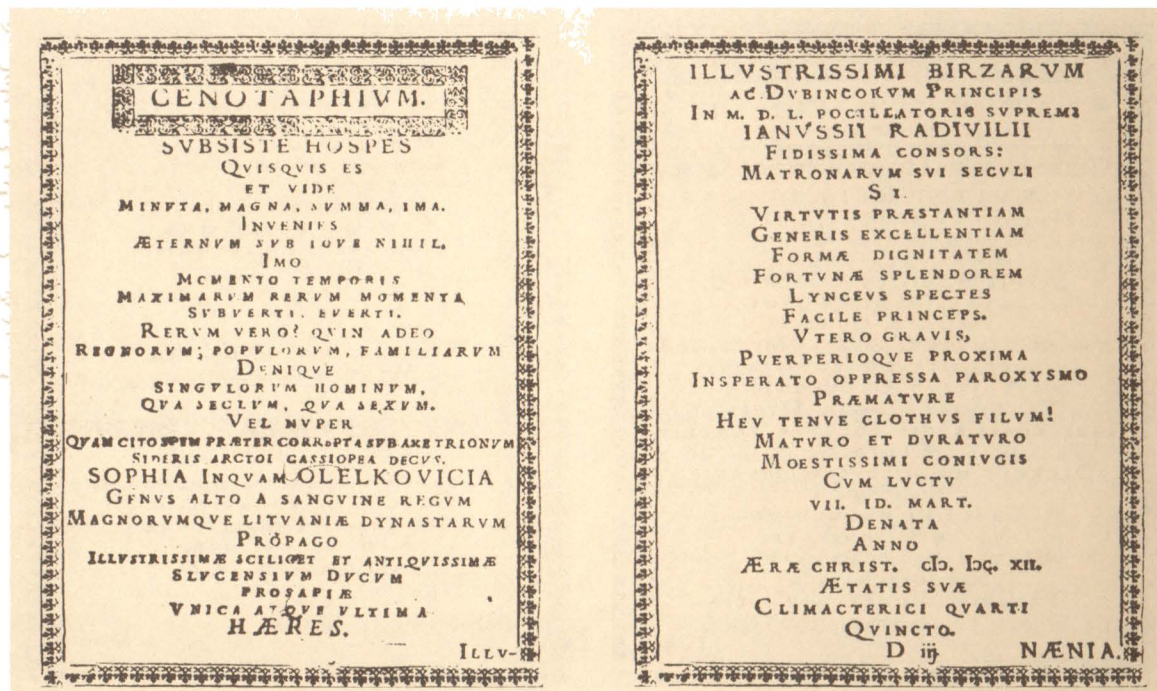 CENOTAPHIVM.
SVBSISTE HOSPES
QVISQVIS ES
ET VIDE
MINVTA, MAGNA, SVMMA, IMA.
INVENIES
ÆTERNVM SVB IOVE NIHIL.
IMO
MOMENTO TEMPORIS
MAXIMARVM RERVM MOMENTA
SVBVERTI, EVERTI.
RERVM VERO? QVIN ADEO
REGNORVM; POPVLORVM, FAMILIARVM
DENIQVE
SINGVLORVM HOMINVM,
QVA SECLVM, QVA SEXVM.
VEL NVPER
QVAM CITO SPEM PRÆTER CORREPTA SVB AXE TRIONVM
SIDERIS ARCTOI CASSIOPEA DECVS.
SOPHIA INQVAM OLELKOVICIA
GENVS ALTO A SANGVINE REGVM
MAGNORVMQVE LITVANIÆ DYNASTARVM
PROPAGO
ILLVSTRISSIMÆ SCILICET ET ANTIQVISSIMÆ
SLVCENSIVM DVCVM
PROSAPIÆ
VNICA ATQVE VLTIMA
HÆRES.
ILLV-
ILLVSTRISSIMI BIRZARVM
AC DVBINCORVM PRINCIPIS
IN M. D. L. POCILLATORIS SVPREMI
IANVSSII RADIVILII
FIDISSIMA CONSORS:
MATRONARVM SVI SECVLI
SI.
VIRTVTIS PRÆSTANTIAM
GENERIS EXCELLENTIAM
FORMÆ DIGNITATEM
FORTVNÆ SPLENDOREM
LYNCEVS SPECTES
FACILE PRINCEPS.
VTERO GRAVIS,
PVERPERIOQVE PROXIMA
INSPERATO OPPRESSA PAROXYSMO
PRÆMATVRE
HEV TENVE CLOTHVS FILVM!
MATVRO ET DVRATVRO
MOESTISSIMI CONIVGIS
CVM LVCTV
VII. ID. MART.
DENATA
ANNO
ÆRÆ CHRIST. cIↃ. IↃc. XII.
ÆTATIS SVÆ
CLIMACTERICI QVARTI
QVINCTO.
D iij
NÆNIA.